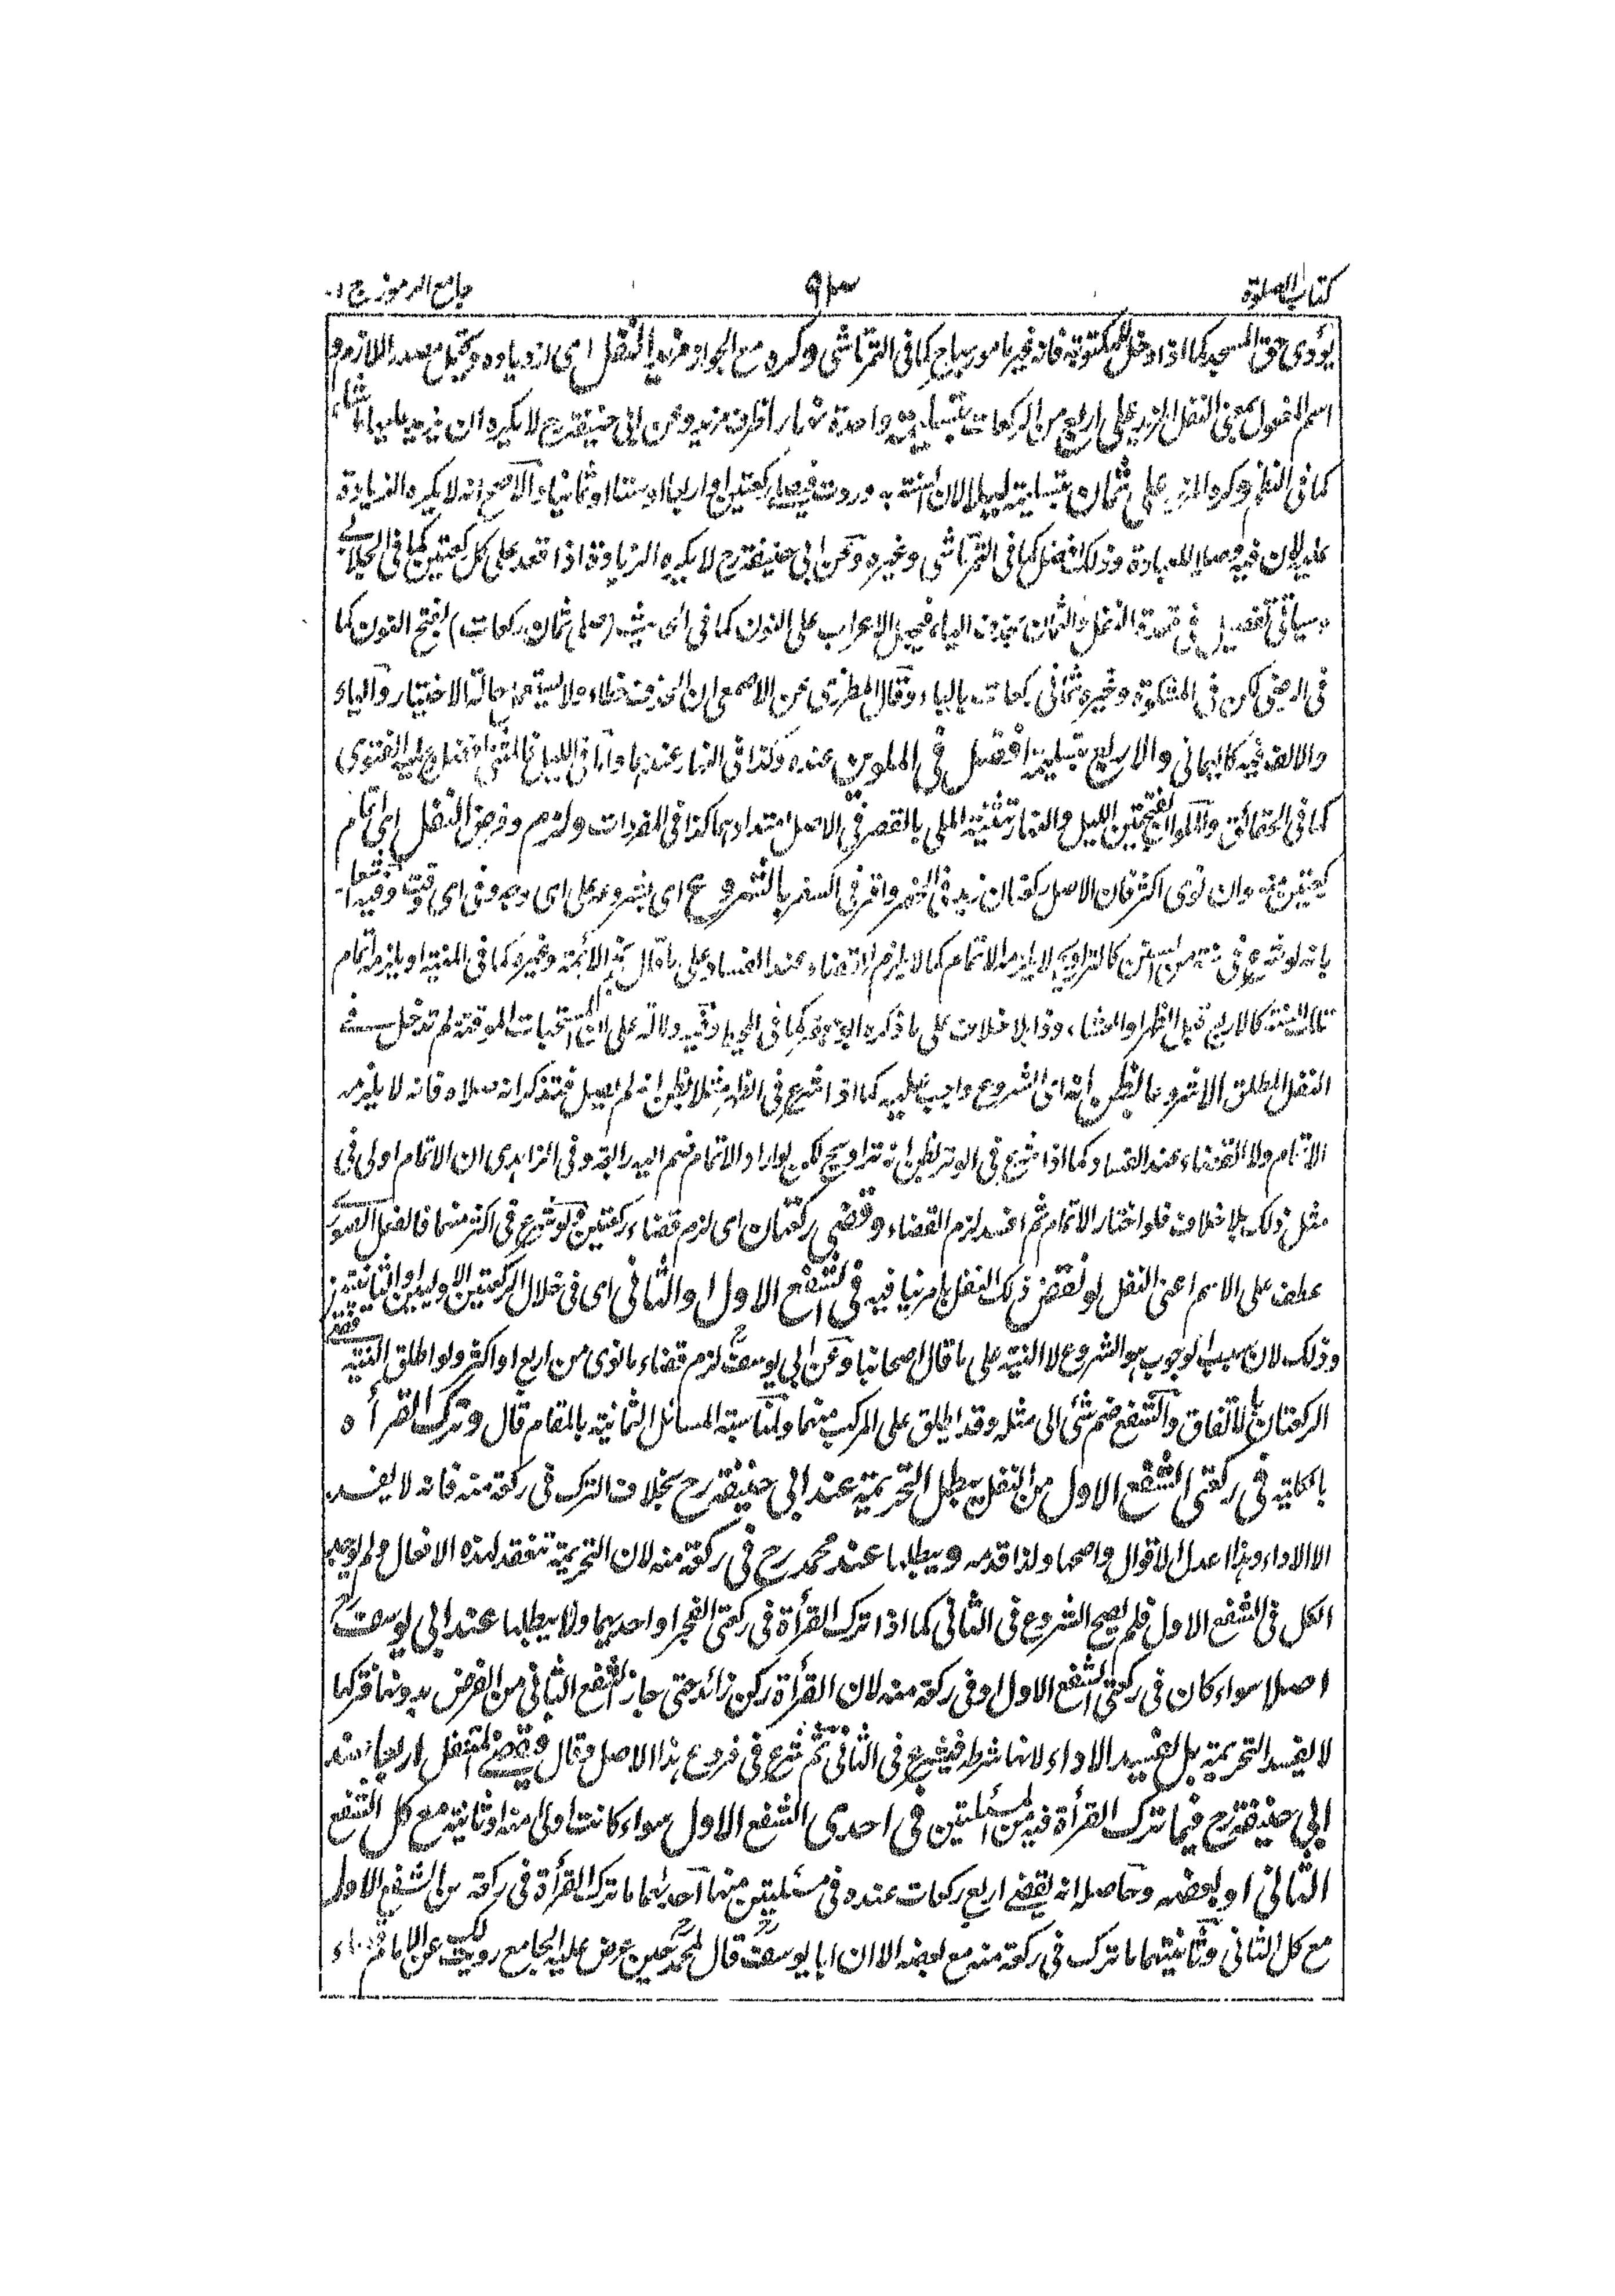 كتاب الصلوة ٩٣ جامع الرموز ج ١
يؤدى حق المسجد كما اذا دخل للمكتوبة فانه غير مامور بها ح كما فى التمرتاشى وكره مع الجواز مزيد النفل اى ازدياده ويحتمل مصدر اللازم و
اسم المفعول بمعنى النفل المزيد على اربع من الركعات بتسليمة واحدة نهارا ظرف مزيد وعن ابى حنيفة رح لا يكره ان يزيد عليها ما شاء
كما فى النظم وكره المزيد على ثمان بتسليمة ليلا لان السنة به وردت فيصلى ركعتين او اربعا او ستا او ثمانيا والاصح انه لا يكره الزيادة
عليه لان فيه وصلا للعبادة وذلك افضل كما فى التمرتاشى وغيره وعن ابى حنيفة رح لا يكره الزيادة اذا قعد على كل ركعتين كما فى الجلابى
وسياتى تفصيل فى قعدة النفل والثمان بحذف الياء فيجعل الاعراب على النون كما فى الحديث (صلى ثمان ركعات) بفتح النون كما
فى الرضى لكن فى المشكوة وغيره ثمانى ركعات بالياء وقال المطرزى عن الاصمعى ان الحذف خطاء ولا يستعمل حالة الاختيار والياء
والالف فيه كاليمانى والاربع بتسليمة افضل فى الملوين عنده وكذا فى النهار عندهما واما فى الليل فالمثنى افضل وعليه الفتوى
كما فى الحقائق والملوان بفتحتين الليل والنهار تثنية الملى بالقصر فى الاصل امتدادهما كذا فى المفردات ولزم وفرض النفل اى اتمام
ركعتين منه وان نوى اكثر فان الاصل ركعتان زيد فى الحضر واقر فى السفر بالشروع اى بشروعه على اى وجه وفى اى وقت وفيه اشعار
بانه لو شرع فى سنة من السنن كالتراويح لا يلزمه الاتمام كما لا يلزم القضاء عند الفساد على ما قال نجم الائمة وغيره كما فى المنية او يلزم اتمام
تلك السنة كالاربع قبل الظهر او العشاء وذا بلا خلاف على ما ذكره ابو جعفر كما فى المحيط وفيه دلالة على ان المستحبات الموقتة لم تدخل فى
النفل المطلق الا شروعا بظن انه اى الشروع واجب عليه كما اذا شرع فى الظهر مثلا بظن انه لم يصل فتذكر انه صلاه فانه لا يلزمه
الاتمام ولا القضاء عند الفساد وكما اذا شرع فى الوتر بظن انه تراويح لكن لو اراد الاتمام ضم اليه رابعة وفى الزاهدى ان الاتمام اولى فى
مثل ذلك بلا خلاف فلو اختار الاتمام ثم افسد لزم القضاء وقضى ركعتان اى لزم قضاء ركعتين لو شرع فى اكثر منهما فالفعل الصورى
عطف على الاسم اعنى النفل لو نقض ذلك النفل بامر ينافيه فى الشفع الاول او الثانى اى فى خلال الركعتين الاوليين او الثانيتين
وذلك لان سبب الوجوب هو الشروع لا النية على ما قال اصحابنا وعن ابى يوسف رح لزم قضاء ما نوى من اربع او اكثر ولو اطلق النية فقضى
الركعتان بالاتفاق والشفع ضم شئ الى مثله وقد اطلق على المركب منهما ولمناسبة المسائل الثمانية بالمقام قال وترك القرأة
بالكلية فى ركعتى الشفع الاول من النفل يبطل التحريمة عند ابى حنيفة رح بخلاف الترك فى ركعة منه فانه لا يفسد
الا الاداء وهذا اعدل الاقوال واصحها ولذا قدمه ويبطلها عند محمد رح فى ركعة منه لان التحريمة تنعقد لهذه الافعال ولم يوجد
الكل فى الشفع الاول فلم يصح الشروع فى الثانى كما اذا ترك القرأة فى ركعتى الفجر او احديهما ولا يبطلها عند ابى يوسف رح
اصلا سواء كان فى ركعتى الشفع الاول او فى ركعة منه لان القرأة ركن زائد حتى جاز الشفع الثانى من الفرض بدونها فتركها
لا يفسد التحريمة بل يفسد الاداء لانها شرط فيشرع فى الثانى ثم شرع فى فروع هذا الاصل وقال ويقضى المتنفل اربعا عند
ابى حنيفة رح فيما ترك القرأة فيه من المسئلتين فى احدى الشفع الاول سواء كانت اولى منه او ثانية مع كل الشفع
الثانى او بعضه وحاصله انه يقضى اربع ركعات عنده فى مسئلتين منها احدهما ما ترك القرأة فى ركعة من الشفع الاول
مع كل الثانى وثانيتهما ما ترك فى ركعة منه مع بعضه الا ان ابا يوسف رح قال لمحمد رح حين عرض عليه الجامع رويت لك عن الامام قضاء